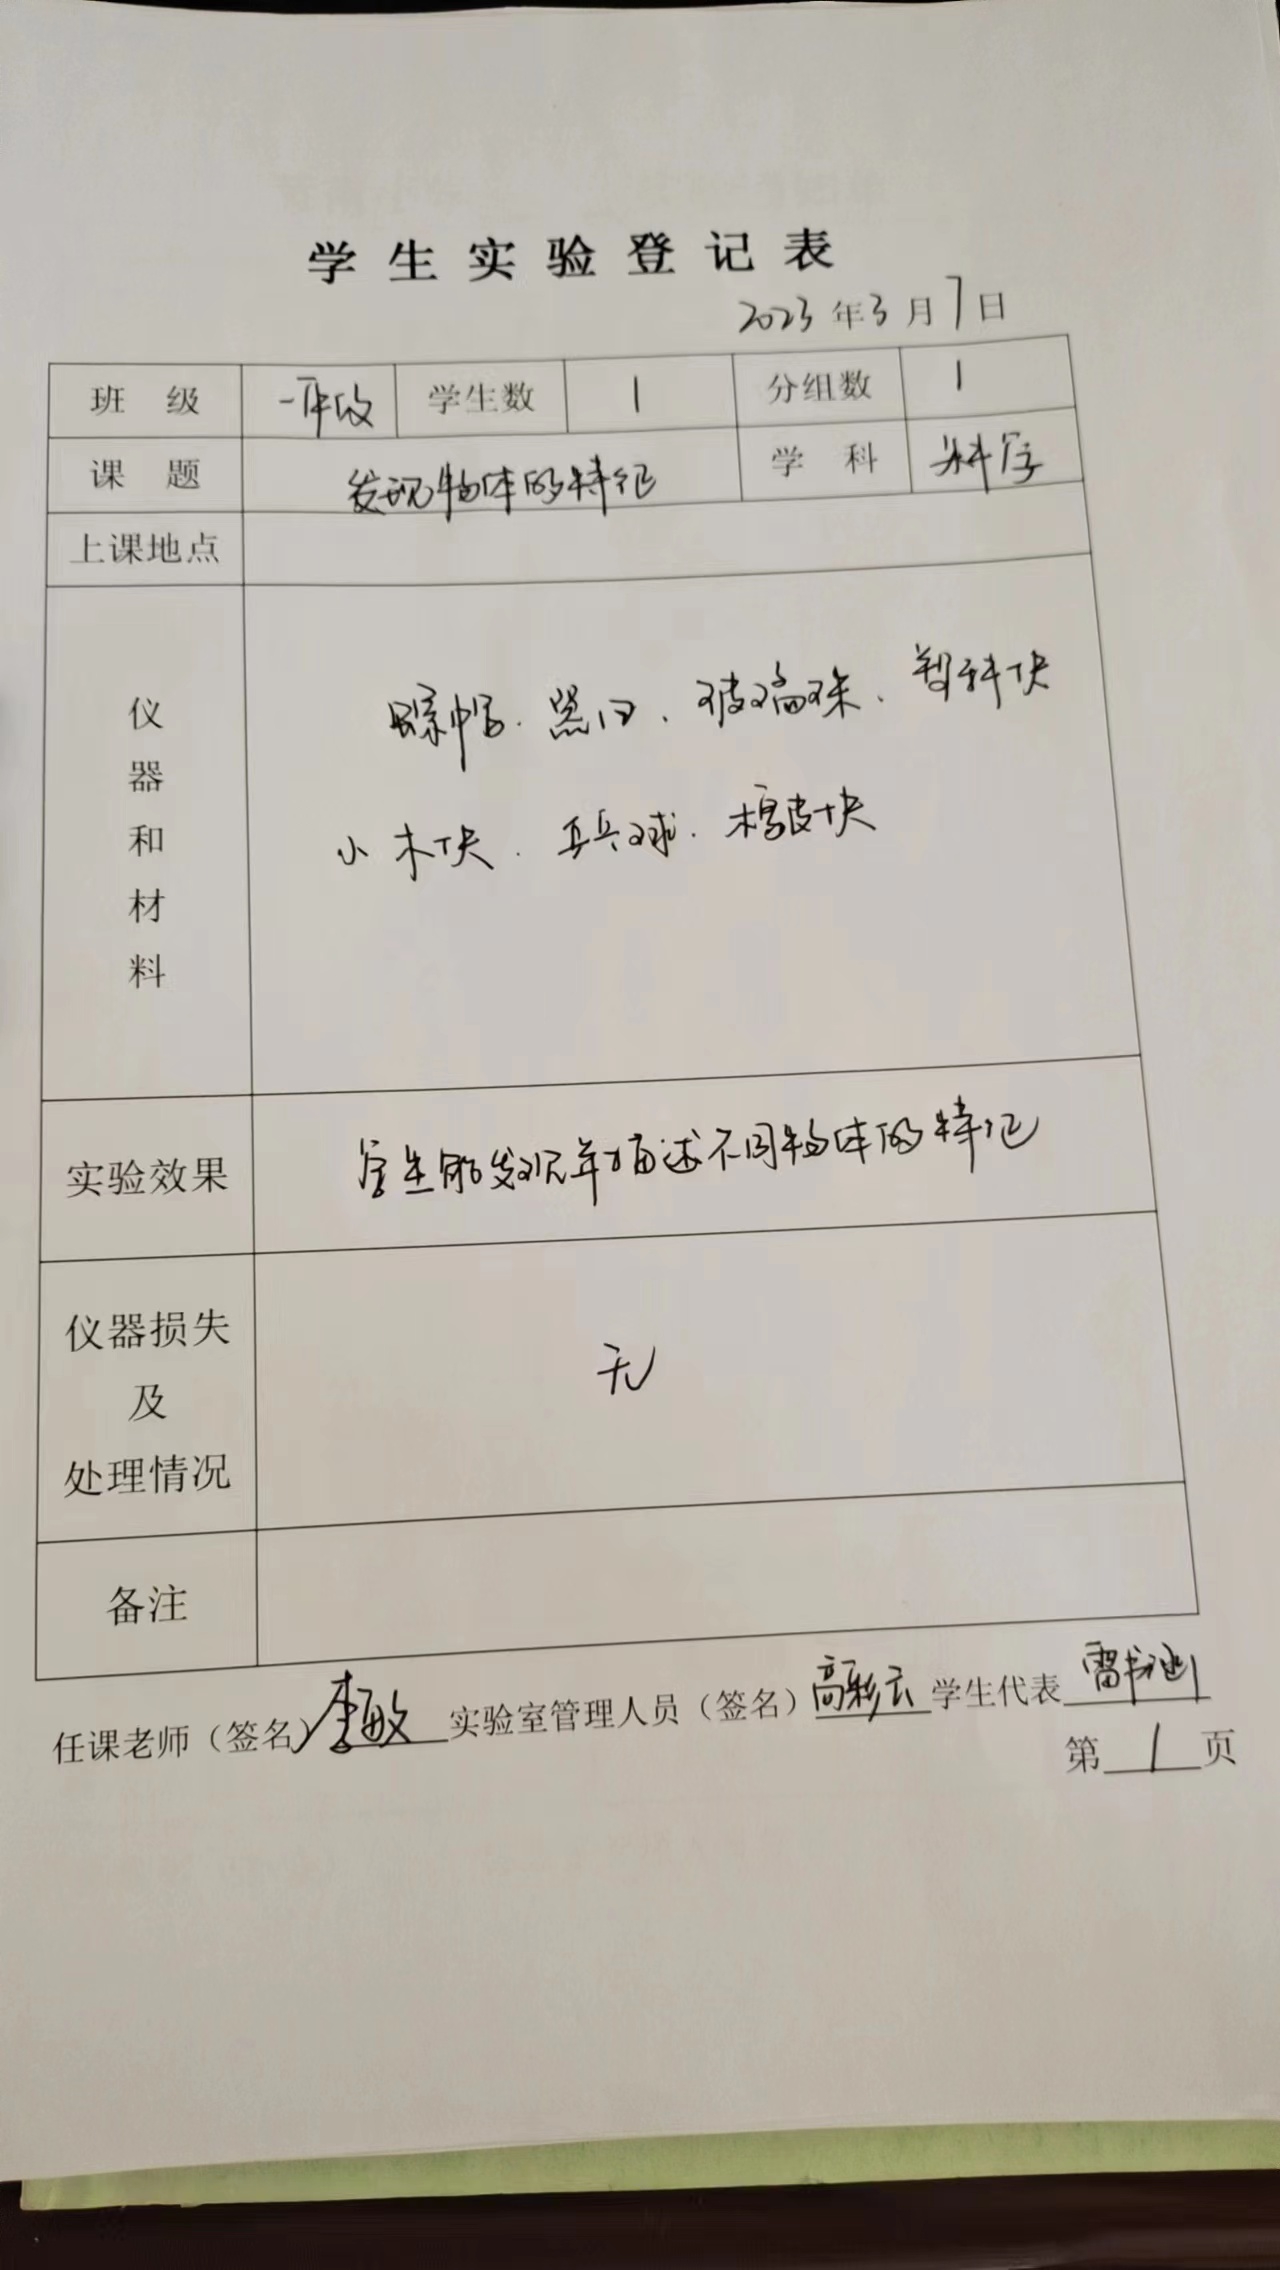 学生实验登记表
2023年3月7日
班级 一年级 学生数 1 分组数 1
课题 发现物体的特征 学科 科学
上课地点
仪器和材料
玻璃珠、塑料块
小木块、乒乓球、橡皮块
实验效果 学生能发现并描述不同物体的特征
仪器损失
及 无
处理情况
备注
任课老师(签名)李敏 实验室管理人员(签名)高彩云 学生代表
第1页